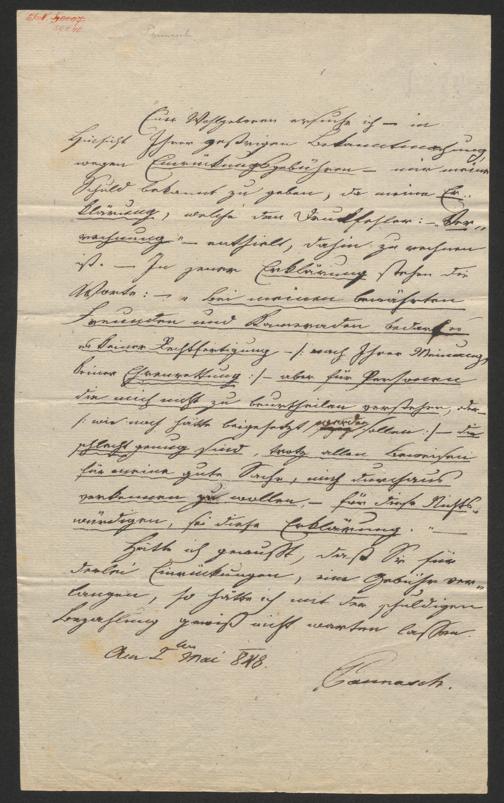 Euer Wohlgeboren ersuche ich – in
Hinsicht Ihrer gestrigen Bekanntmachung
wegen Einrückungsgebühren – mir meine
Schuld bekannt zu geben, da meine Er-
klärung, welche den Druckfehler: – Ver-
rechnung" – enthielt, dahin zu rechnen
ist. – In jener Erklärung stehen die
Worte: – „bei meinen bewährten
Freunden und Kameraden bedarf es
keiner Rechtfertigung – /: nach Ihrer Meinung
keiner Ehrenrettung :/ – aber für Personen
die mich nicht zu beurtheilen verstehen, oder
/: wie noch hätte beigesetzt werden sollen :/ – die
schlecht genug sind, trotz allen Beweisen
für meine gute Sache, mich durchaus
verkennen zu wollen, – für diese Nichts-
würdigen, sei diese Erklärung. "
Hätte ich gewußt, daß Sie für
derlei Einrückungen, eine Gebühr ver-
langen, so hätte ich mit der schuldigen
Bezahlung gewiß nicht warten lassen.
Am 2ten Mai 848.
Pannasch.